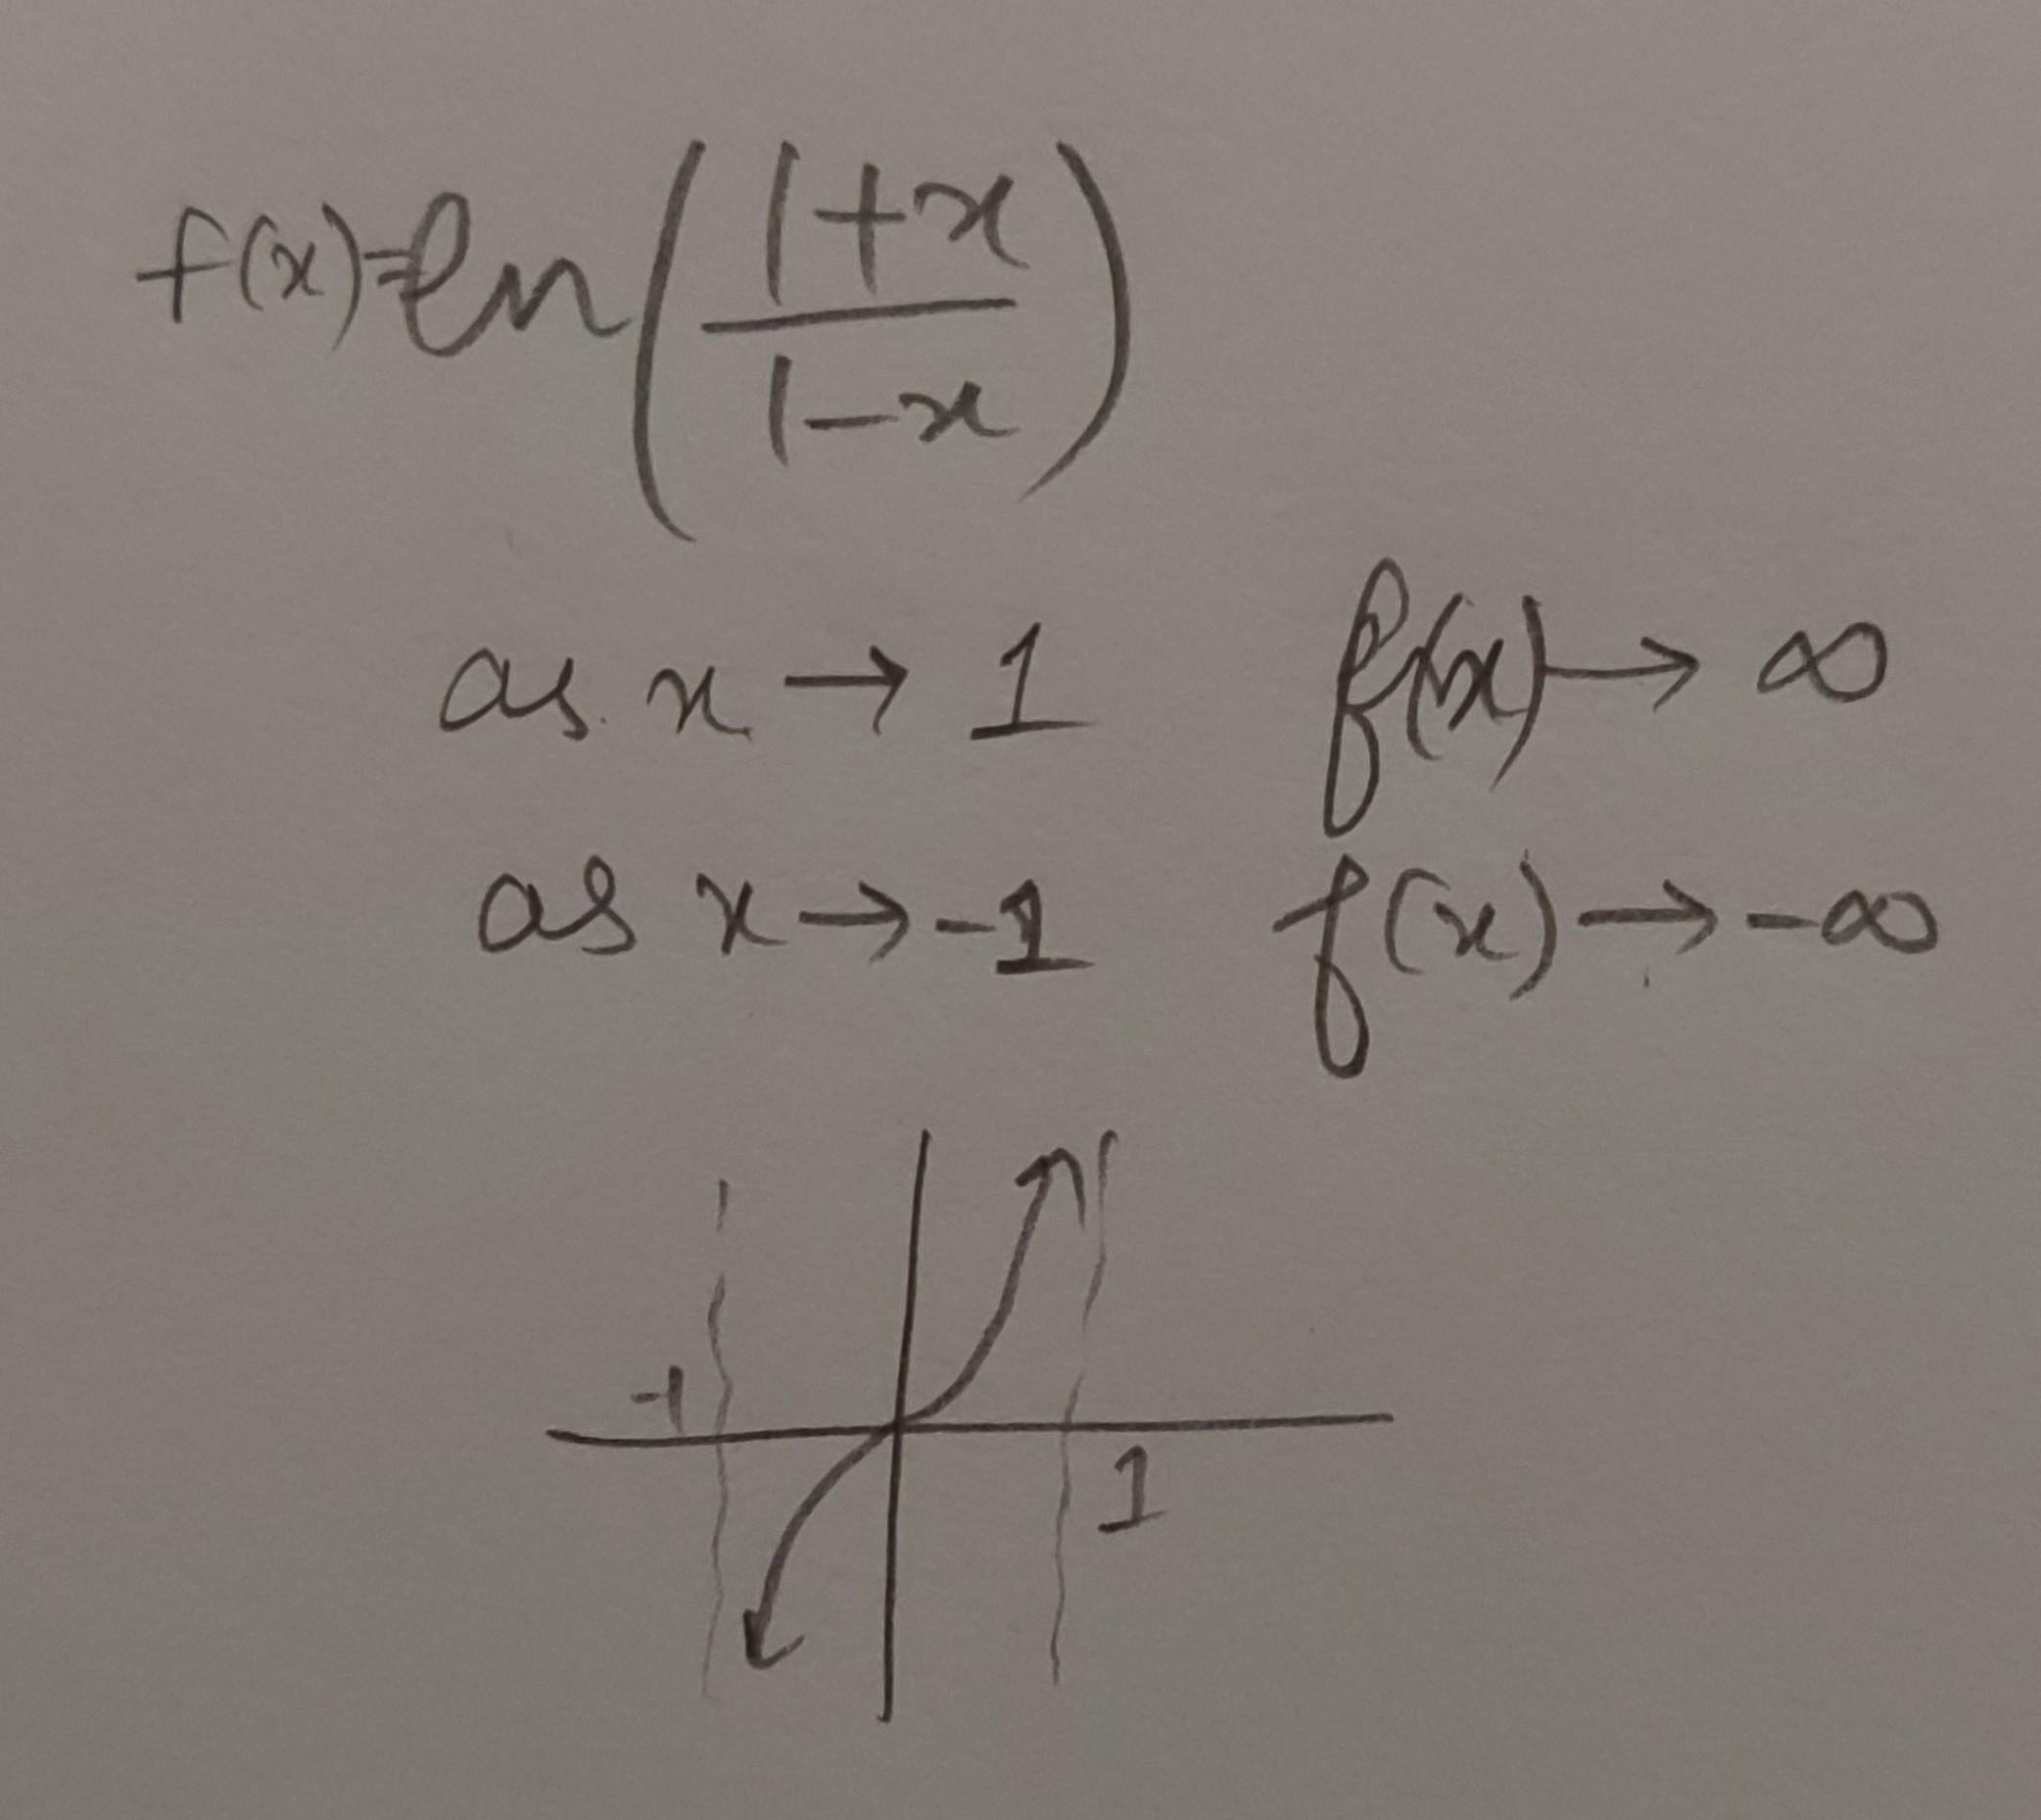 f(x)=ln(1+x/1-x)
as x→1 f(x)→∞
as x→-1 f(x)→-∞
-1
1